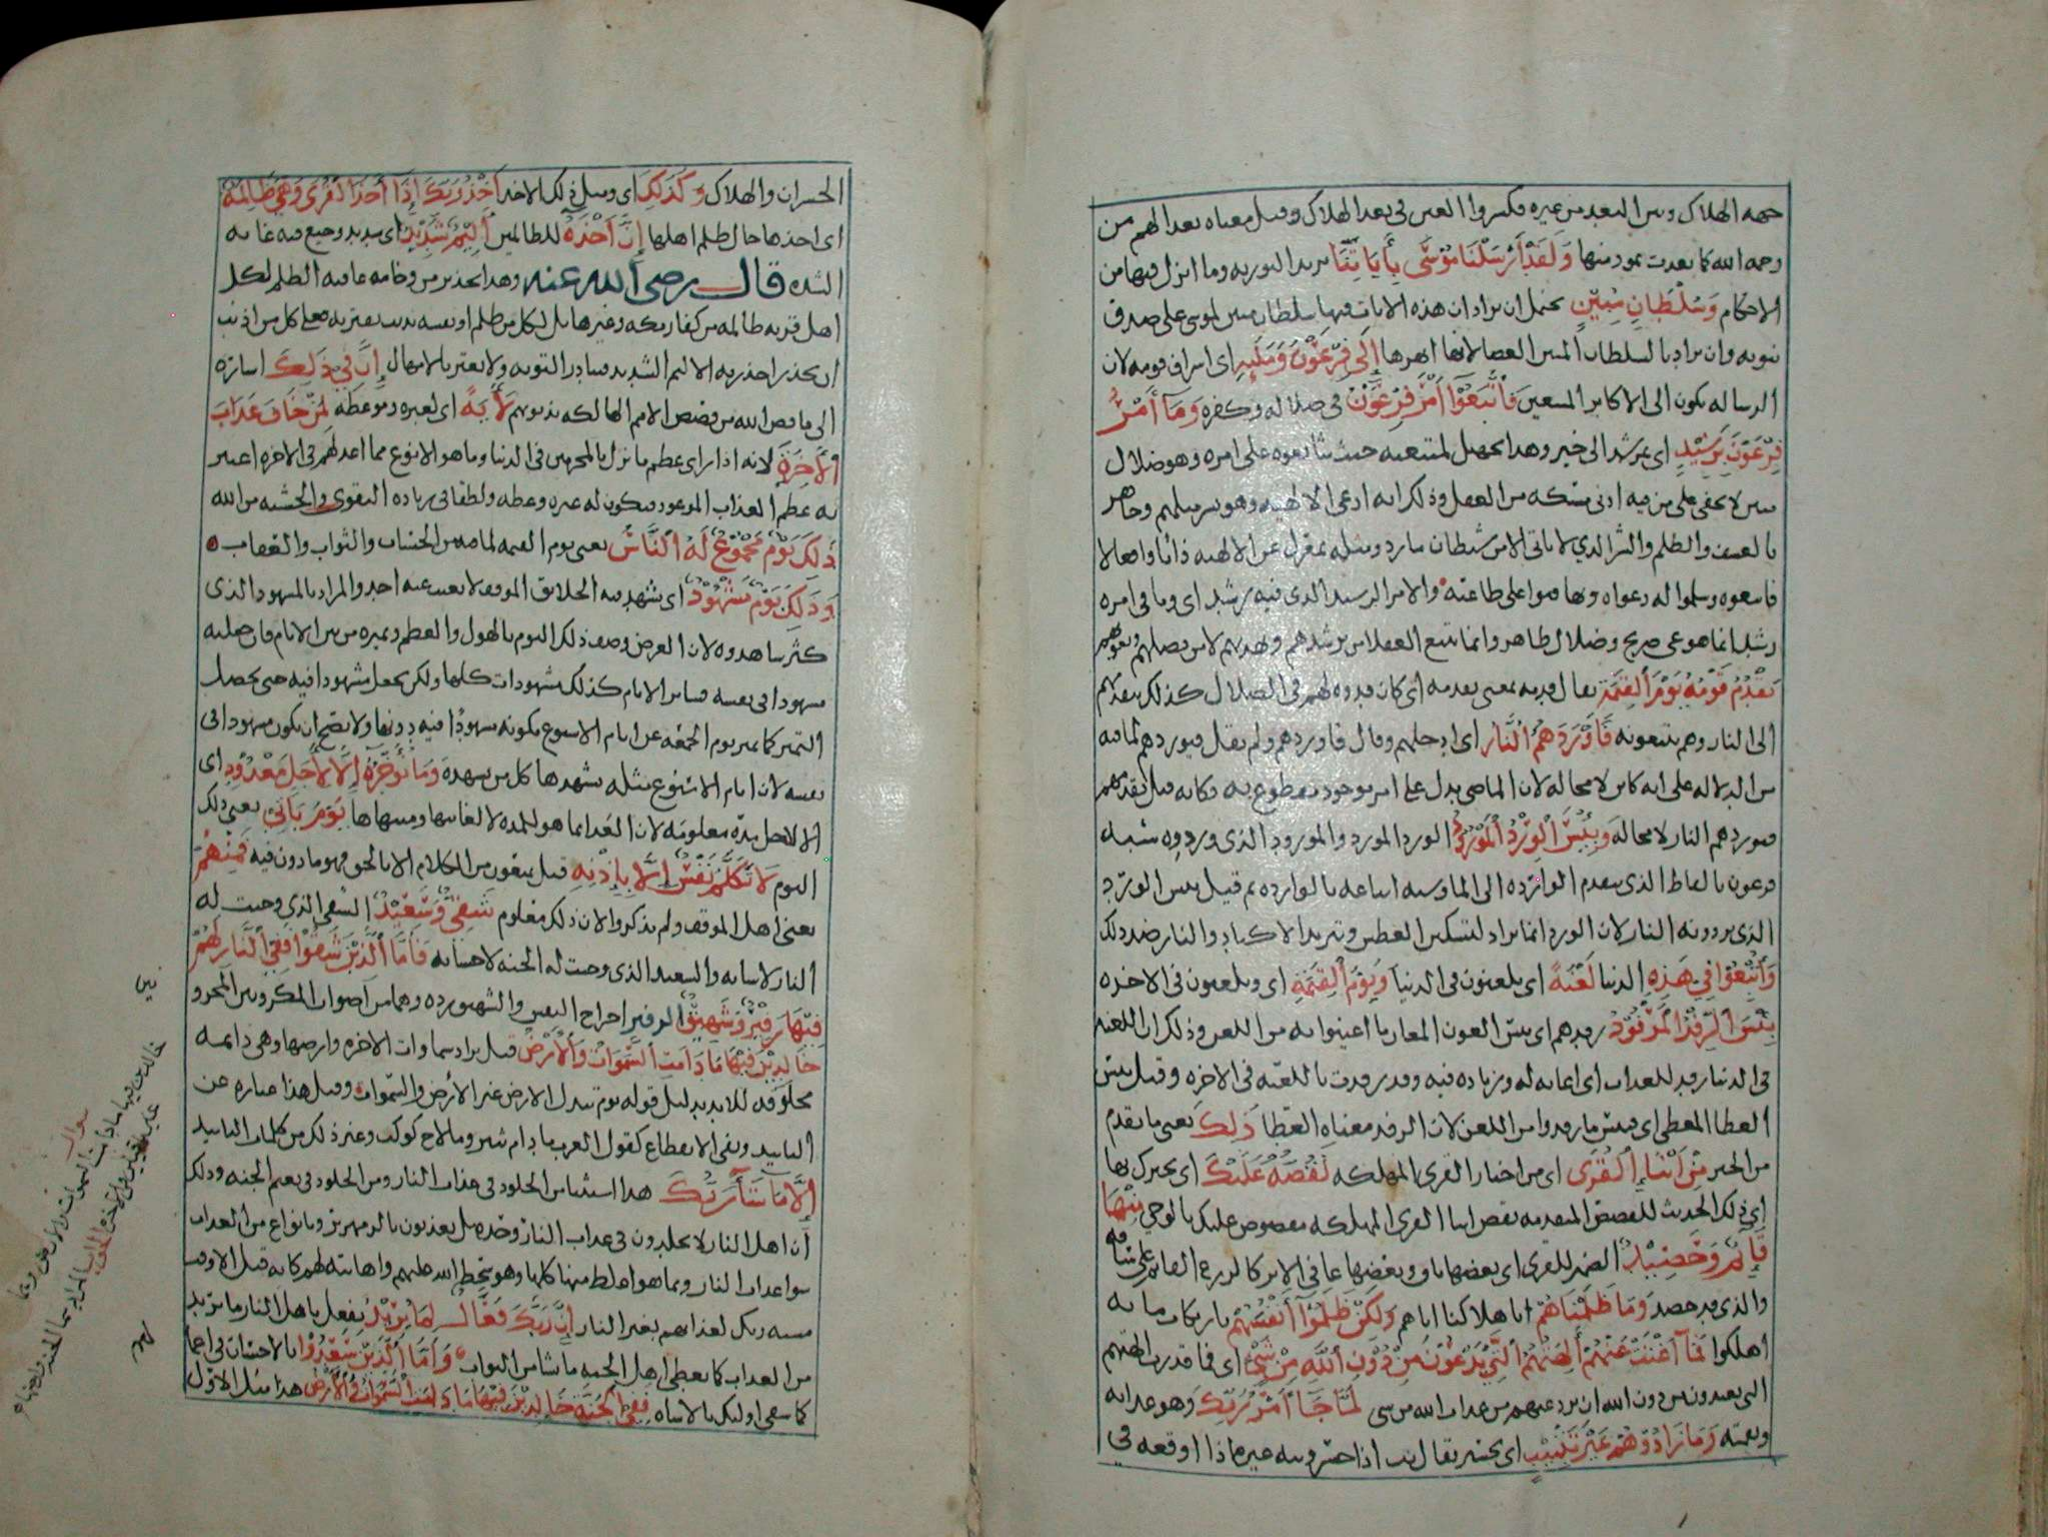 جهه الهلاك وبين البعد من غيره فكسروا العين في بعد الهلاك وقيل معناه بعدا لهم من
رحمه الله كما بعدت ثمود منها وَلَقَدْ أَرْسَلْنَا مُوسَى بِأَيَاتِنَا يريد التوريه وما انزل فيها من
الاحكام وَسُلْطَانٍ مُبِيْنٍ يحتمل ان يراد ان هذه الايات فيها سلطان مبين لموسى على صدق
نبوته وان يراد بالسلطان المبين العصا لانها ابهرها إِلَى فِرْعَوْنَ وَمَلَئِهِ اى اشراف قومه لان
الرساله تكون الى الاكابر المتبعين فَاتَّبَعُوْا أَمْرَ فِرْعَوْنَ فى ضلاله وكفره وَمَا أَمْرُ
فِرْعَوْنَ بِرَشِيْدٍ اى بمرشد الى خير وهذا تجهيل لمتبعيه حيث تابعوه على امره وهو ضلال
مبين لا يخفى على من فيه ادنى مسكه من العقل وذلك انه ادعى الالهيه وهو بشر مثلهم وجاهر
بالعسف والظلم والشر الذي لا ياتى الا من شيطان مارد ومثله بمعزل عن الالهيه ذاتا وافعالا
فاتبعوه وسلموا له دعواه وتهافتوا على طاعته والامر الرشيد الذى فيه رشد اى وما فى امره
رشد انما هو غى صريح وضلال ظاهر وانما يتبع العقلا من يرشدهم ويهديهم لا من يضلهم ويغويهم
يَقْدُمُ قَوْمَهُ يَوْمَ الْقِيمَةِ يقال قدمه بمعنى تقدمه اى كان قدوه لهم فى الضلال كذلك يتقدمهم
الى النار وهم يتبعونه فَأَوْرَدَهُمُ النَّارَ اى ادخلهم وقال فاوردهم ولم يقل فيوردهم لما فيه
من الدلاله على انه كاين لا محاله لان الماضى يدل على امر موجود مقطوع به فكانه قيل يقدمهم
فيوردهم النار لا محاله وَبِئْسَ الْوِرْدُ الْمَوْرُوْدُ الورد المورد والمورود الذى وردوه شبه
فرعون بالفارط الذى يتقدم الوارده الى الما وشبه اتباعه بالوارده ثم قيل بئس الورد
الذى يردونه النار لان الورد انما يراد لتسكين العطش وتبريد الاكباد والنار ضد ذلك
وَأُتْبِعُوْا فِي هَذِهِ الدنيا لَعْنَةً اى يلعنون فى الدنيا وَيَوْمَ الْقِيمَةِ اى ويلعنون فى الاخره
بِئْسَ الرِّفْدُ الْمَرْفُوْدُ رفدهم اى بئس العون المعان ما اعينوا به من اللعن وذلك ان اللعنه
فى الدنيا رفد للعذاب اى اعانه له وزياده فيه وقد رفدت باللعنه فى الاخره وقيل بئس
العطا المعطى اى فبئس ما رفدوا من اللعن لان الرفد معناه العطا ذَلِكَ يعنى ما تقدم
من الخبر مِنْ أَنْبَاءِ الْقُرَى اى من اخبار القرى المهلكه نَقُصُّهُ عَلَيْكَ اى نخبرك بها
اى ذلك الحديث للقصص المتقدمه بعض انبا القرى المهلكه مقصوص عليك بالوحى مِنْهَا
قَائِمٌ وَحَصِيْدٌ الضمير للقرى اى بعضها باق وبعضها عافى الاثر كالزرع القايم على ساقه
والذى قد حصد وَمَا ظَلَمْنَاهُمْ اى باهلاكنا اياهم وَلَكِنْ ظَلَمُوْا أَنْفُسَهُمْ بارتكاب ما به
أهلكوا فَمَا أَغْنَتْ عَنْهُمْ أَلِهَتُهُمُ الَّتِي يَدْعُوْنَ مِنْ دُوْنِ اللهِ مِنْ شَيْءٍ اى فما قدرت الهتهم
التى يعبدون من دون الله ان ترد عنهم من عذاب الله من شى لَمَّا جَا أَمْرُ رَبِّكَ وهو عذابه
ونقمته وَمَا زَادُوْهُمْ غَيْرَ تَتْبِيْبٍ اى تخسير يقال تب اذا خسر وتببه غيره اذا اوقعه في
الخسران والهلاك وَكَذَلِكَ اى ومثل ذلك الاخذ أَخْذُ رَبِّكَ إِذَا أَخَذَ الْقُرَى وَهِيَ ظَالِمَةٌ
اى اخذها حال ظلم اهلها إِنَّ أَخْذَهُ للظالمين أَلِيْمٌ شَدِيْدٌ اى شديد وجيع فيه غايه
الشده قال رضى الله عنه وهذا تحذير من وخامه عاقبه الظلم لكل
اهل قريه ظالمه من كفار مكه وغيرها بل لكل من ظلم او نفسه بذنب يقترفه فعلى كل من اذنب
ان يحذر اخذ ربه الاليم الشديد فيبادر التوبه ولا يغتر بالامهال إِنَّ فِي ذَلِكَ اشارة
الى ما قص الله من قصص الامم الهالكه بذنوبهم لَأَيَةً اى لعبره وموعظه لِمَنْ خَافَ عَذَابَ
الْأَخِرَةِ لانه اذا راى عظم ما نزل بالمجرمين فى الدنيا وما هو الا نوع مما اعد لهم فى الاخره اعتبر
به عظم العذاب الموعود فيكون له عبره وعظه ولطفا فى زياده التقوى والخشيه من الله
ذَلِكَ يَوْمٌ مَجْمُوْعٌ لَهُ النَّاسُ يعنى يوم القيمه لما فيه من الحساب والثواب والعقاب
وَذَلِكَ يَوْمٌ مَشْهُوْدٌ اى يشهد فيه الخلائق الموقف لا يغيب عنه احد والمراد بالمشهود الذى
كثر شاهدوه لان الغرض وصف ذلك اليوم بالهول والعظم وتميزه من بين الايام فان جعلته
مشهودا فى نفسه فساير الايام كذلك مشهودات كلها ولكن يجعل مشهودا فيه حتى يحصل
التميز كما تميز يوم الجمعه عن ايام الاسبوع بكونه مشهودا فيه دونها ولا يصح ان يكون مشهودا فى
نفسه لان ايام الاسبوع مثله يشهدها كل من يشهده وَمَا نُؤَخِّرُهُ إِلَّا لِأَجَلٍ مَعْدُوْدٍ اى
الا لاجل مده معلومه لان العد انما هو للمده لا لغايتها ومنتهاها يَوْمَ يَأْتِي يعنى ذلك
اليوم لَا تَكَلَّمُ نَفْسٌ إِلَّا بِإِذْنِهِ قيل يمنعون من الكلام الا بالحق فهو ماذون فيه فَمِنْهُمْ
يعنى اهل الموقف ولم يذكروا لان ذلك معلوم شَقِيٌّ وَسَعِيْدٌ الشقى الذى وجبت له
النار لاسائه والسعيد الذى وجبت له الجنه لاحسانه فَأَمَّا الَّذِيْنَ شَقُوْا فَفِي النَّارِ لَهُمْ
فِيْهَا زَفِيْرٌ وَشَهِيْقٌ الزفير اخراج النفس والشهيق رده وهما من اصوات المكروبين المحزو
نين
خَالِدِيْنَ فِيْهَا مَا دَامَتِ السَّمَوَاتُ وَالْأَرْضُ قيل يراد سماوات الاخره وارضها وهى دايمه
مخلوقه للابد بدليل قوله يوم تبدل الارض غير الارض والسموات وقيل هذا عباره عن
التابيد ونفى الانقطاع كقول العرب ما دام ثبير وما لاح كوكب وغير ذلك من كلمات التابيد
إِلَّا مَا شَاءَ رَبُّكَ هذا استثنا من الخلود فى عذاب النار ومن الخلود فى نعيم الجنه وذلك
أن اهل النار لا يخلدون فى عذاب النار وحده بل يعذبون بالزمهرير وبانواع من العذاب
سوا عذاب النار وبما هو اغلظ منها كلها وهو سخط الله عليهم واهانته لهم كانه قيل الا وقت
مشيه ربك لعذابهم بغير النار إِنَّ رَبَّكَ فَعَّالٌ لِمَا يُرِيْدُ يفعل باهل النار ما يريد
من العذاب كما يعطى اهل الجنه ما شا من الثواب وَأَمَّا الَّذِيْنَ سُعِدُوْا بالاحسان فى اعما
لهم
كما شقى اوليك بالاساه فَفِي الْجَنَّةِ خَالِدِيْنَ فِيْهَا مَا دَامَتِ السَّمَوَاتُ وَالْأَرْضُ هذا مثل الاول
سوال
خالدين فيها ما دامت السموات والارض